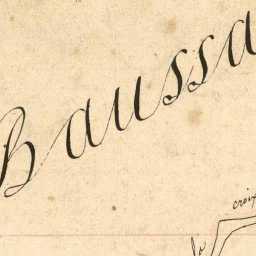 Baussa
croix
la